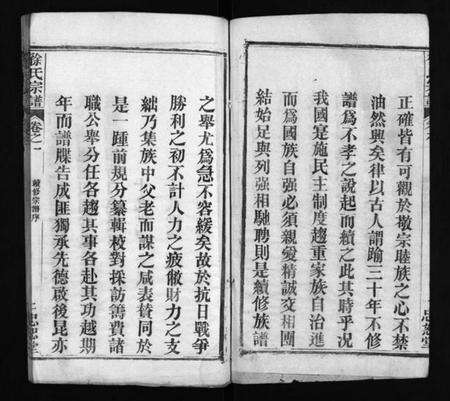 正確皆有可觀於敬宗睦族之心不禁
油然興矣律以古人謂踰三十年不修
譜爲不孝之說起而續之此其時乎況
我國寔施民主制度趨重家族自治進
而爲國族自強必須親愛精誠交相團
結始足與列強相馳聘則是續修族譜
之舉尤爲急不容緩矣故於抗日戰爭
勝利之初不計人力之疲憊財力之支
絀乃集族中父老而謀之咸表贊同於
是一踵前規分纂輯校對採訪善費諸
職公舉分任各趨其事各赴其功越期
年而譜牒告成匪獨承先德啟後昆亦
徐氏宗譜 卷之一 續修宗譜序